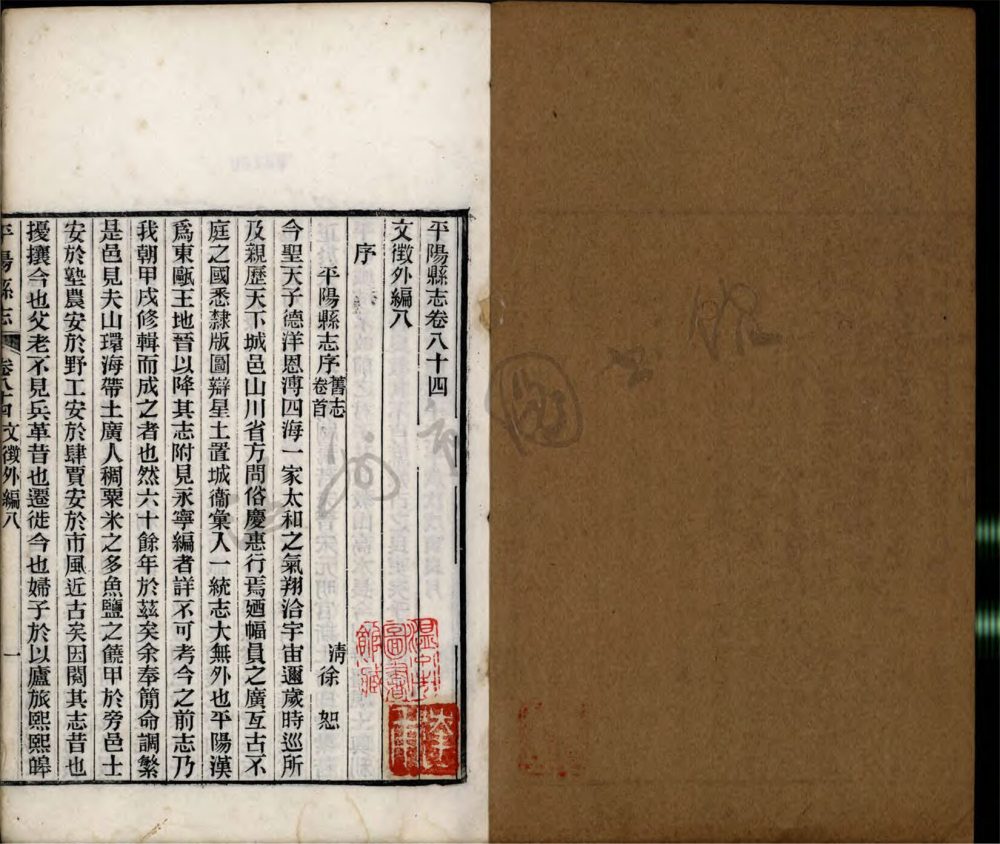 平陽縣志卷八十四
文徵外編八
序
平陽縣志序舊志卷首
清徐恕
今聖天子德洋恩溥四海一家太和之氣翔洽宇宙邇歲時巡所
及親歷天下城邑山川省方問俗慶惠行焉廼幅員之廣亙古不
庭之國悉隸版圖辯星土置城衞彙入一統志大無外也平陽漢
爲東甌王地晉以降其志附見永寧編者詳不可考今之前志乃
我朝甲戌修輯而成之者也然六十餘年於茲矣余奉簡命調繁
是邑見夫山環海帶土廣人稠粟米之多魚鹽之饒甲於旁邑士
安於塾農安於野工安於肆賈安於市風近古矣因閱其志昔也
擾攘今也父老不見兵革昔也遷徙今也婦子於以廬旅熙熙皞
平陽縣志 卷八十四 文徵外編八 一